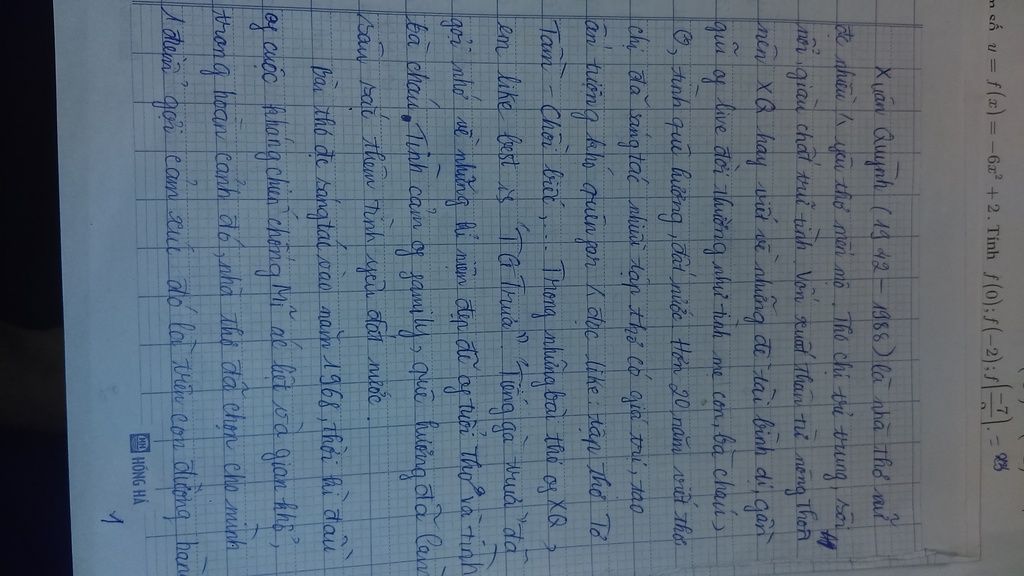 m số y = f(x) = -6x² + 2. Tính f(0); f(-2); f
Xuân Quỳnh (1942 - 1988) là nhà thơ nữ
đc nhiều yêu thơ mến mộ. Thơ chị trẻ trung, sôi
nổi, giàu chất trữ tình. Vốn xuất thân từ nông thôn
nên XQ hay viết về những đề tài bình dị, gần
gũi vs live đời thường như tình mẹ con, bà cháu,
tình quê hương, đất nước. Hơn 20 năm viết thơ
chị đã sáng tác nhiều tập thơ có giá trị, tạo
ấn tượng khó quên đc like: tập thơ Tơ
Tằm - Chồi biếc,... Trong những bài thơ of XQ,
em like best is "TG Trưa". "Tiếng gà trưa" đã
gợi nhớ về những kỉ niệm đẹp đẽ of tuổi thơ và tình
bà cháu. Tình cảm of family, quê hương đã làm
sâu sắc thêm tình yêu đất nước.
Bài thơ đc sáng tác vào năm 1968, thời kì đầu
of cuộc kháng chiến chống Mĩ ác liệt và gian khổ,
trong hoàn cảnh đó, nhà thơ đã chọn cho mình
1 điểm gợi cảm xúc đó là: trên con đường hàn
HỒNG HÀ
1